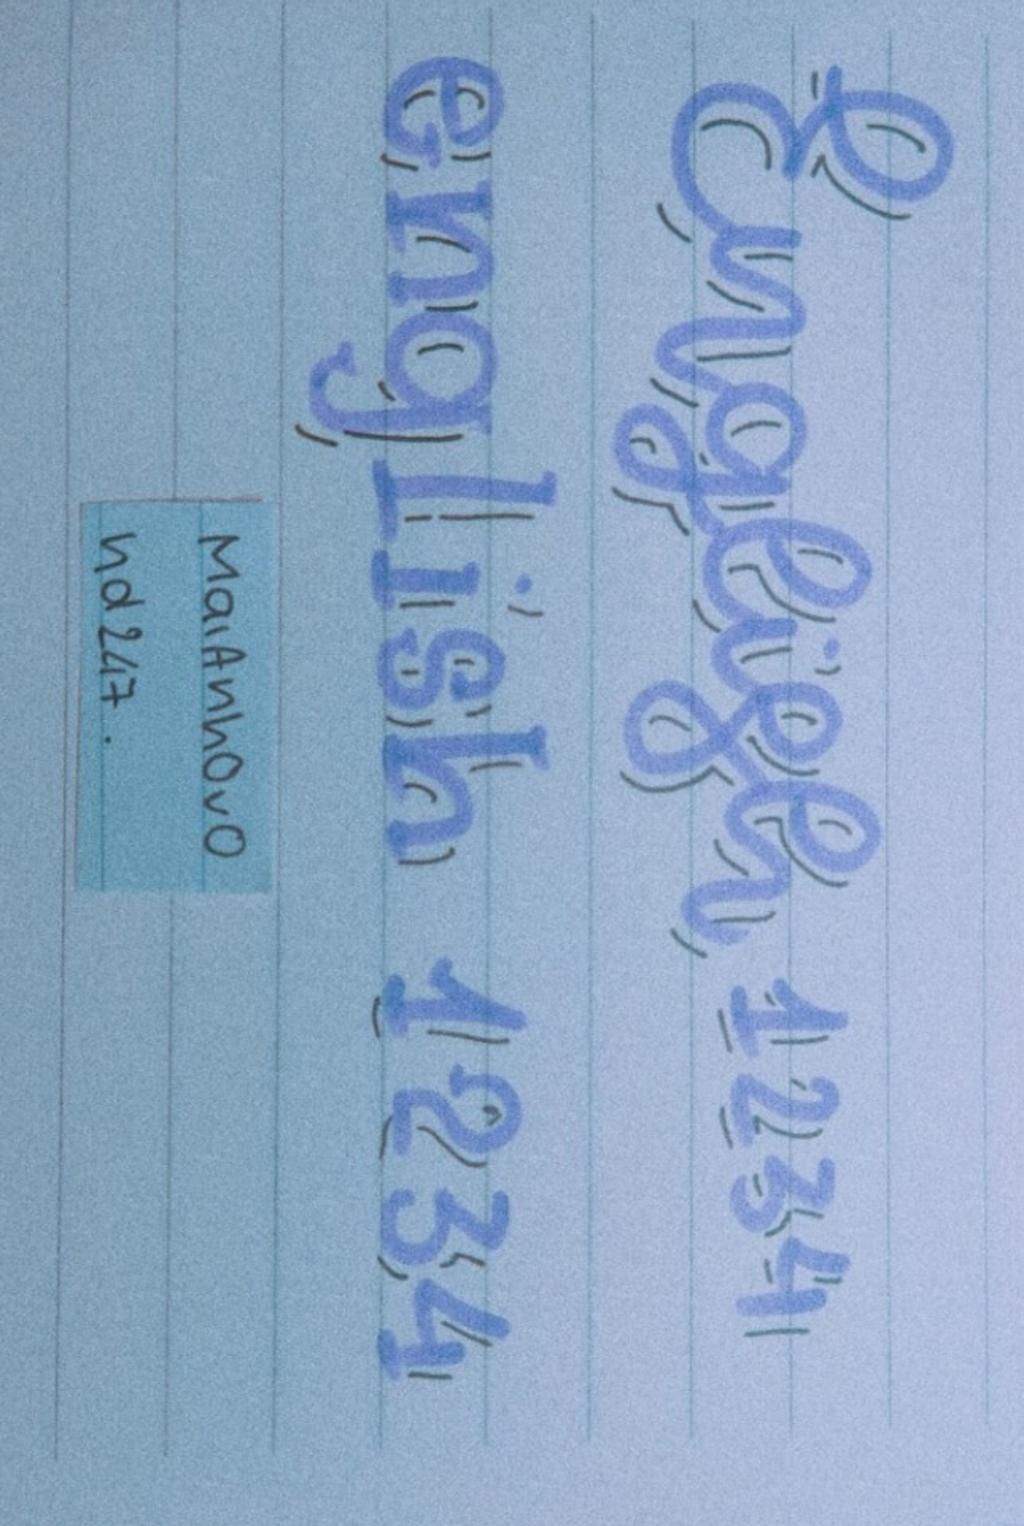 English 1234
english 1234
MaiAnhOvO
nd247.